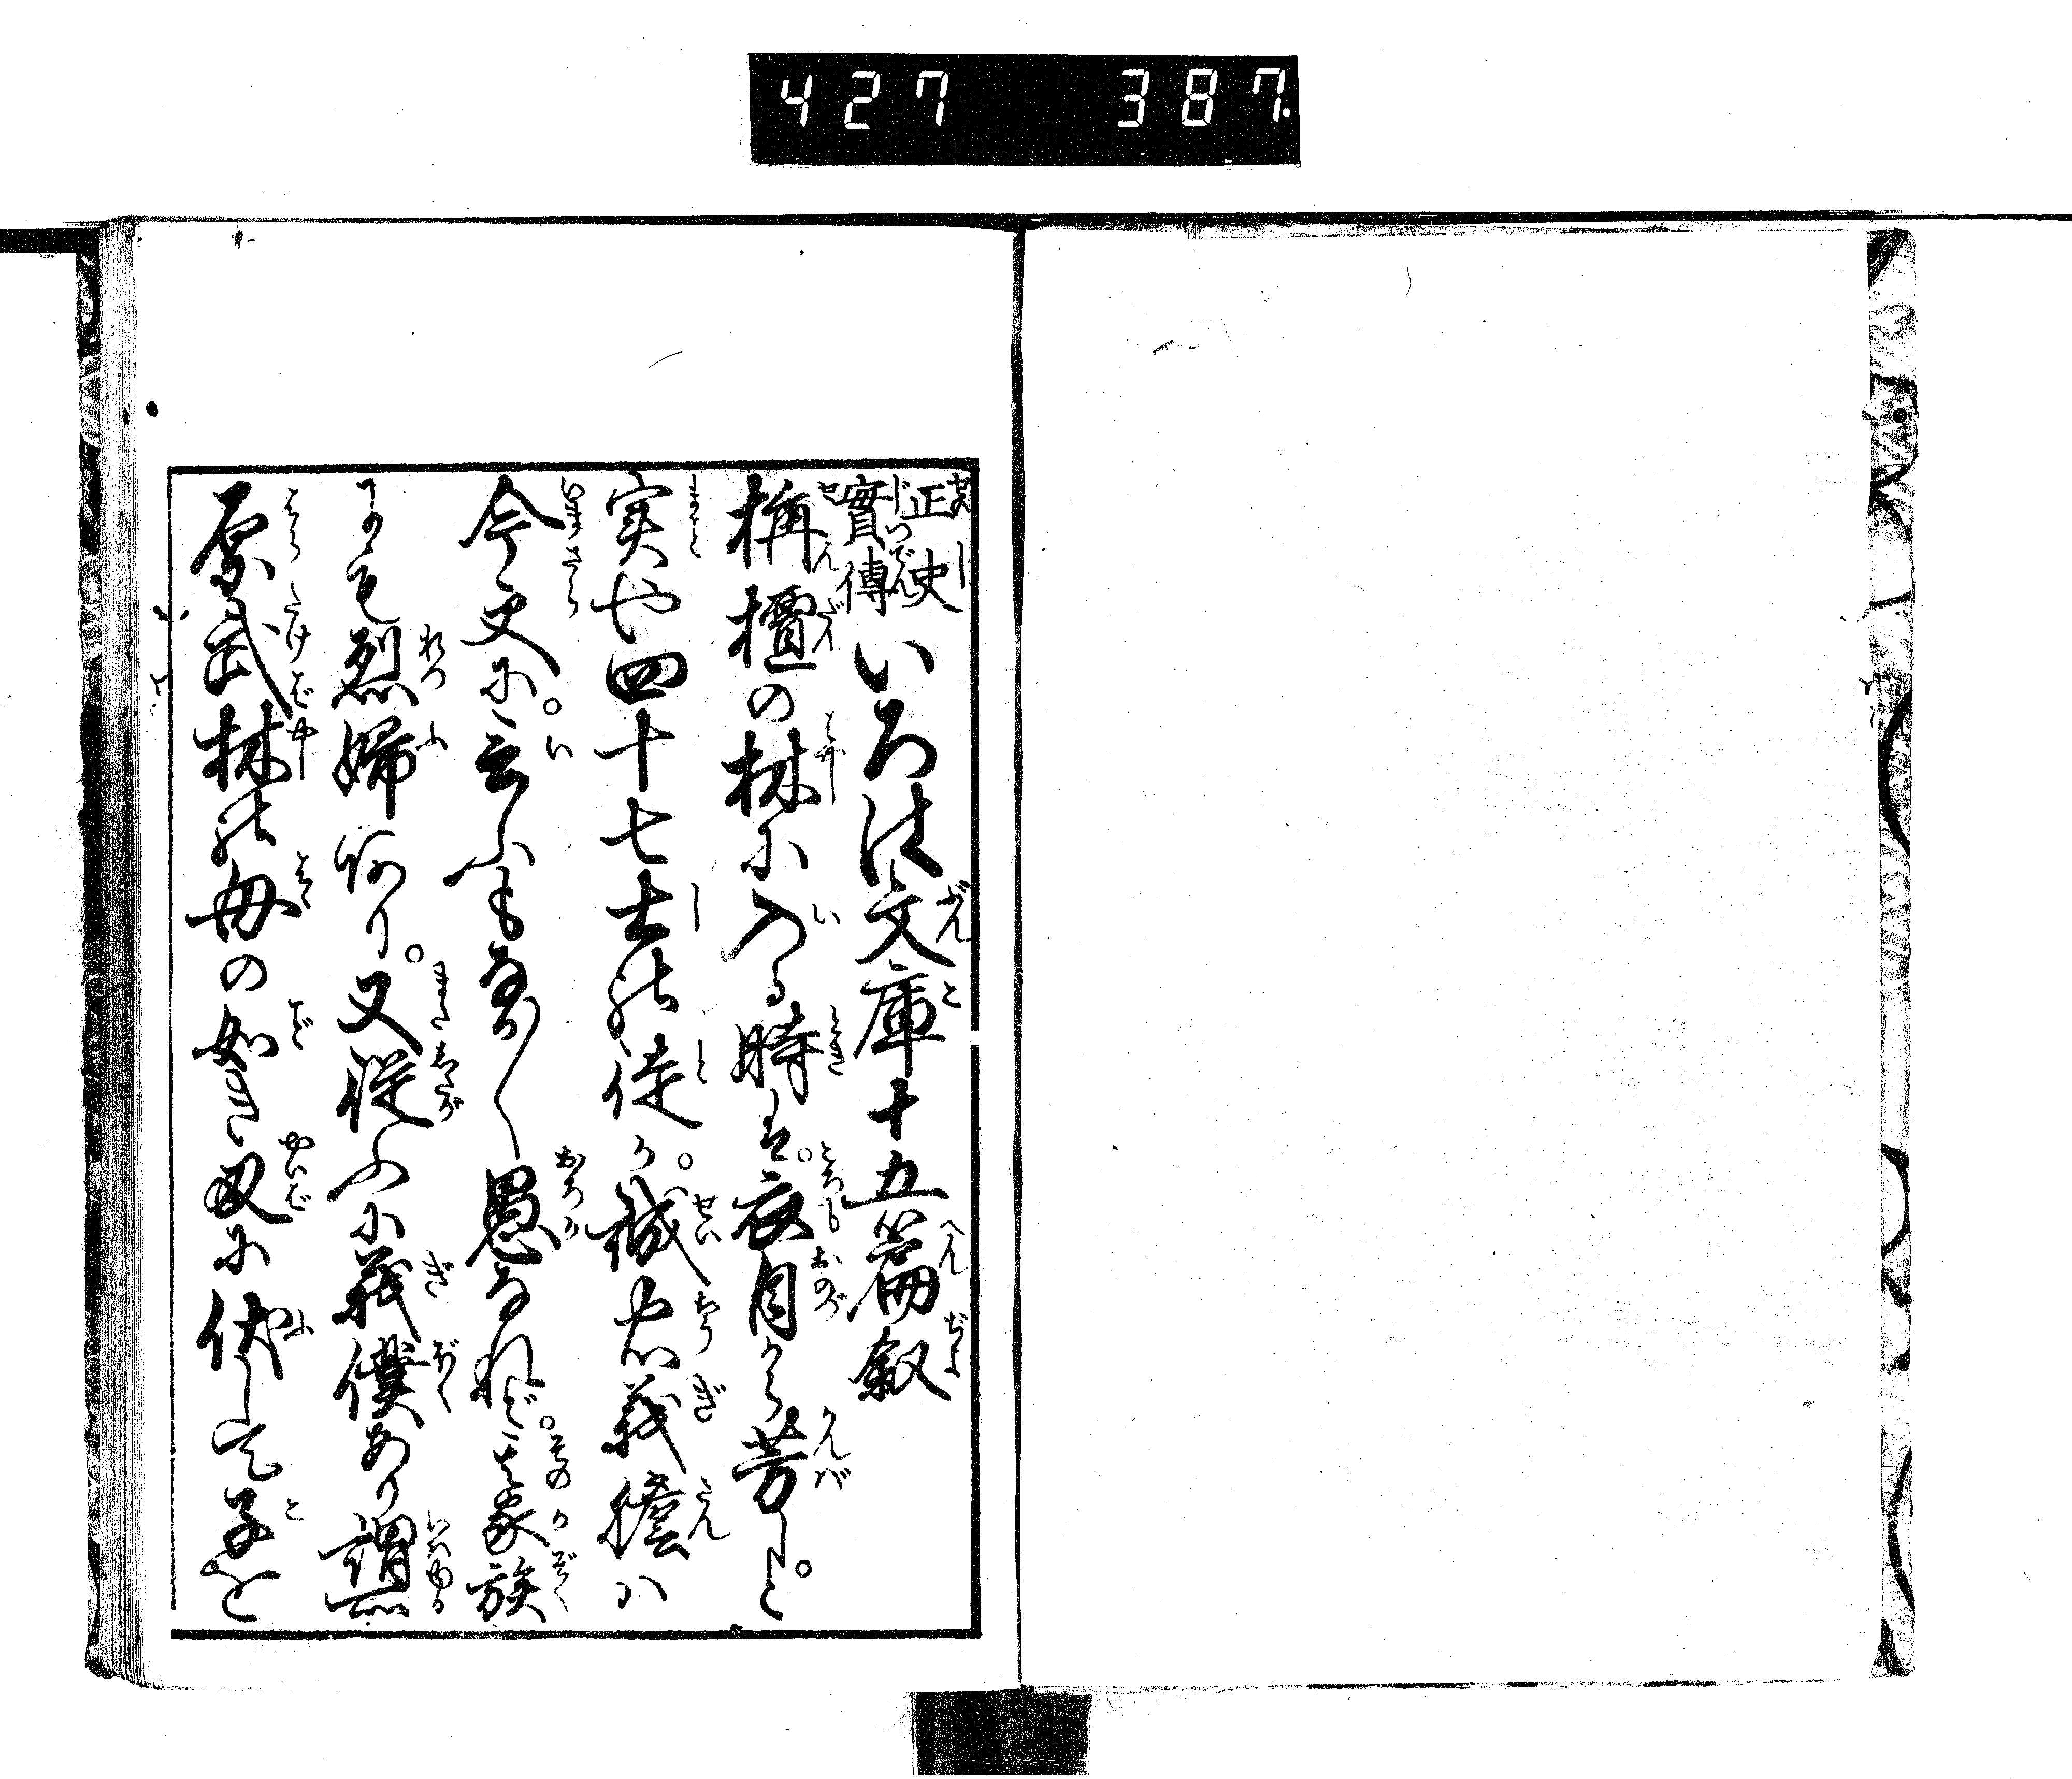 427 387
正史實傳いろは文庫十五篇叙
栴檀の林に入る時は。衣自から芳しと。
実や四十七士の徒が。誠忠義膽ハ
今更に。云ふも中々愚なれど。其家族
にかも烈婦あり。又従ふに義僕あり謂
原武林の母の如き刄に伏して子を